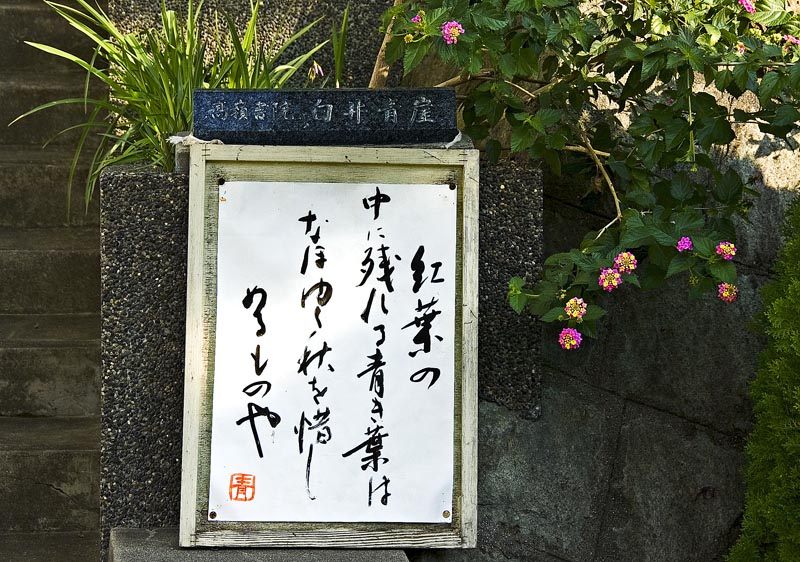 高嶺書院 白井青崖
紅葉の
中に残れる青き葉は
なほゆく秋を惜し
めるものや
青